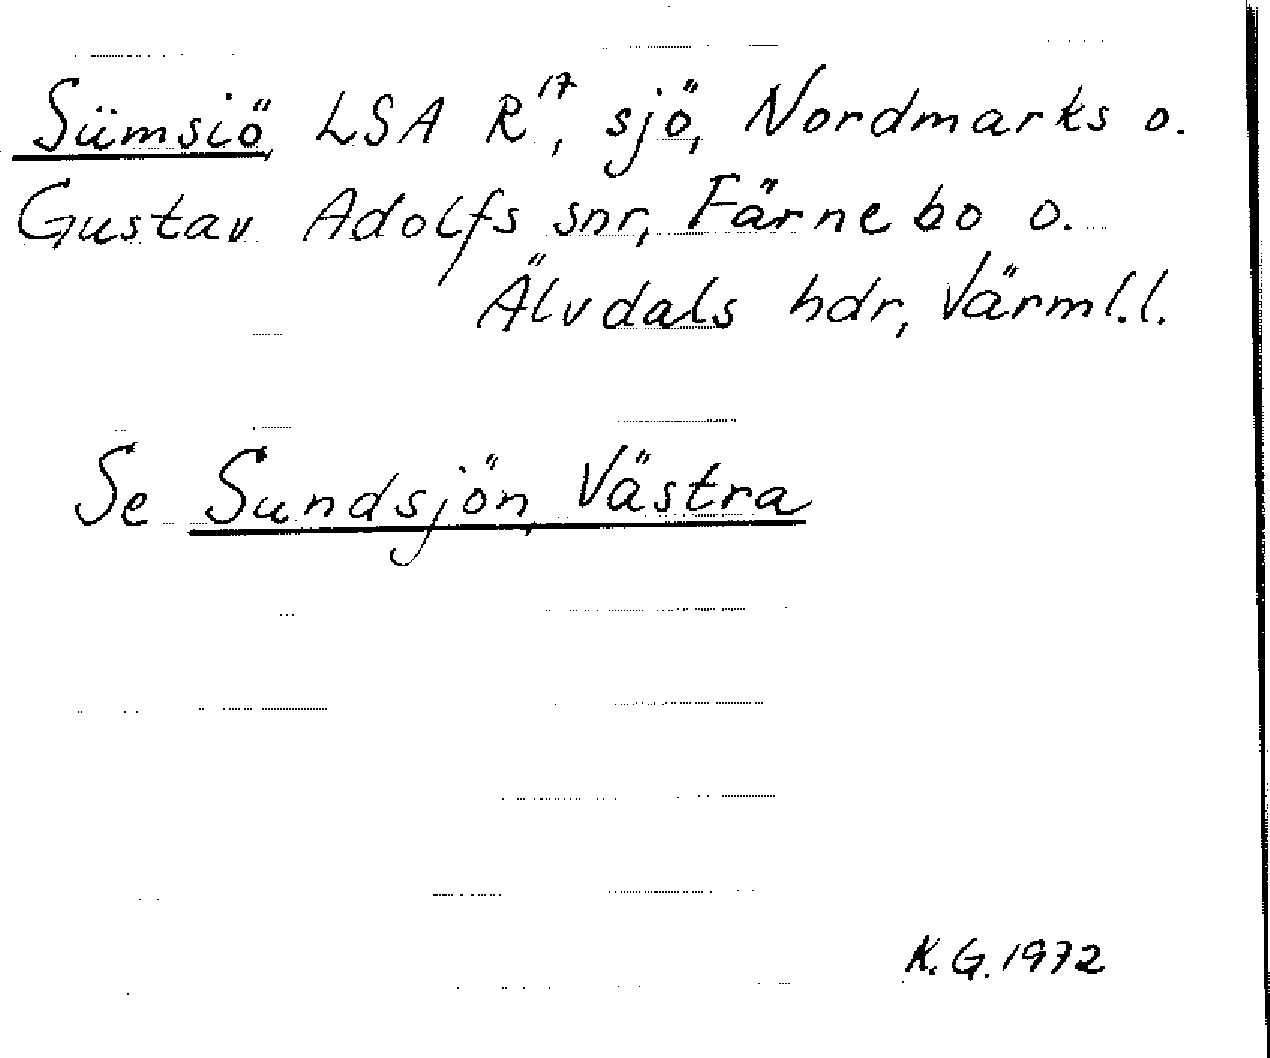 Sümsiö, LSA R17, sjö, Nordmarks o.
Gustav Adolfs snr, Färnebo o.
Älvdals hdr, Värml.l.
Se Sundsjön, Västra
K.G. 1972